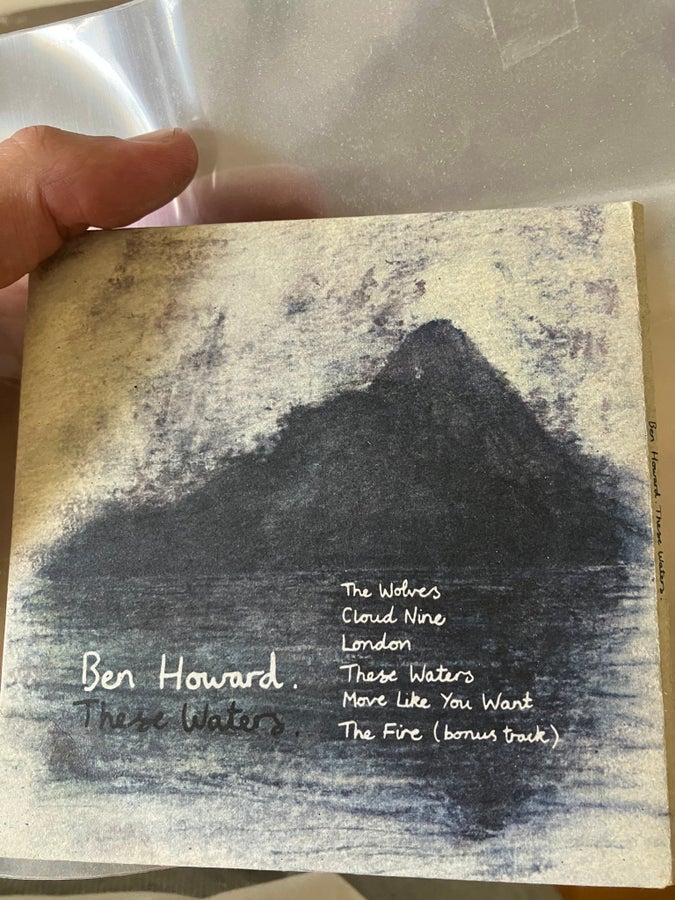 Ben Howard.
These Waters.
The Wolves
Cloud Nine
London
These Waters
Move Like You Want
The Fire (bonus track)
Ben Howard These Waters.